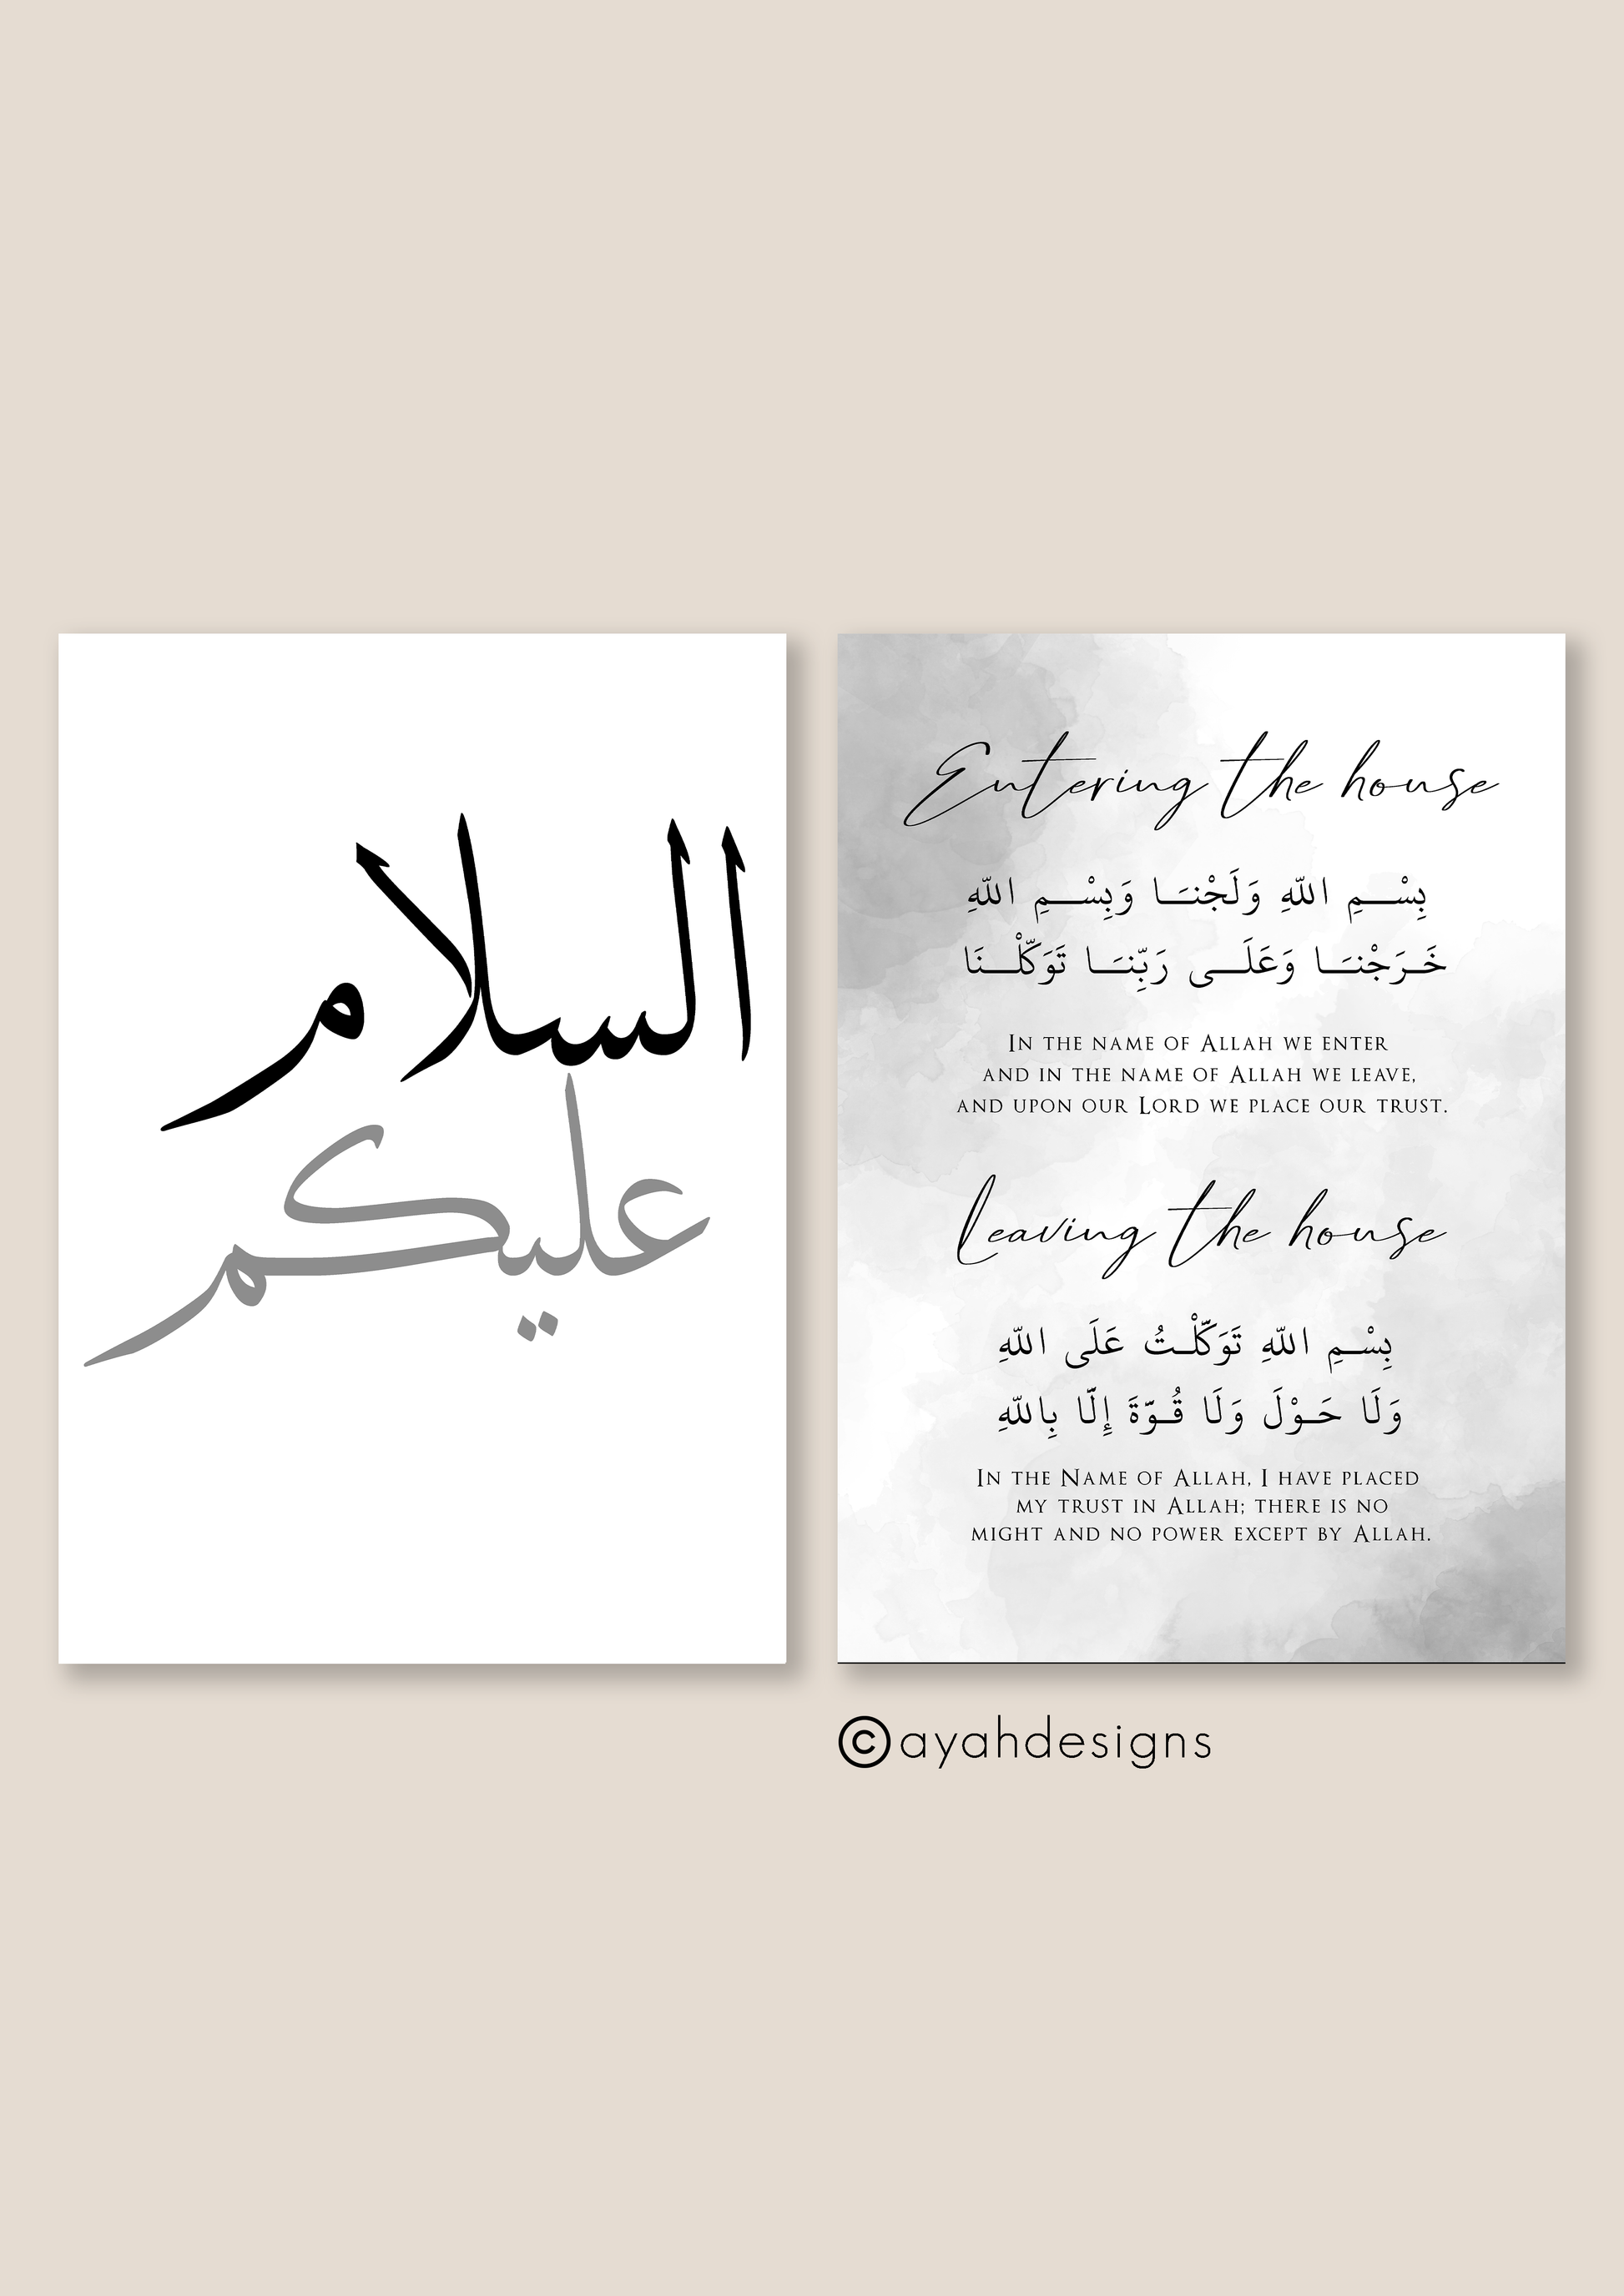 السلام
عليكم
Entering the house
بِسْـــمِ اللّهِ وَلَجْنـَــا وَبِسْـــمِ اللّهِ
خَـرَجْنـَــا وَعَلَـــى رَبِّنـَــا تَوَكَّلْـــنَا
In the name of Allah we enter
and in the name of Allah we leave,
and upon our Lord we place our trust.
Leaving the house
بِسْـمِ اللّهِ تَوَكَّلْـتُ عَلَى اللّهِ
وَلَا حَـوْلَ وَلَا قُـوَّةَ إِلَّا بِاللّهِ
In the Name of Allah, I have placed
my trust in Allah; there is no
might and no power except by Allah.
©ayahdesigns